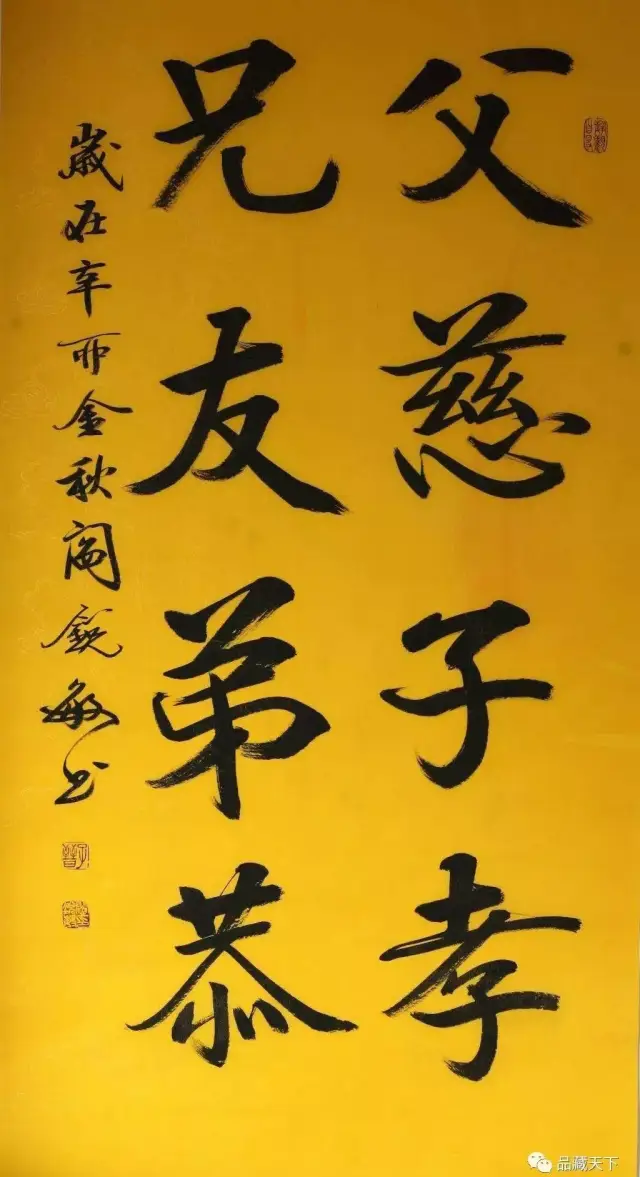 父慈子孝
兄友弟恭
歲在辛卯金秋阎銳敏书
品藏天下